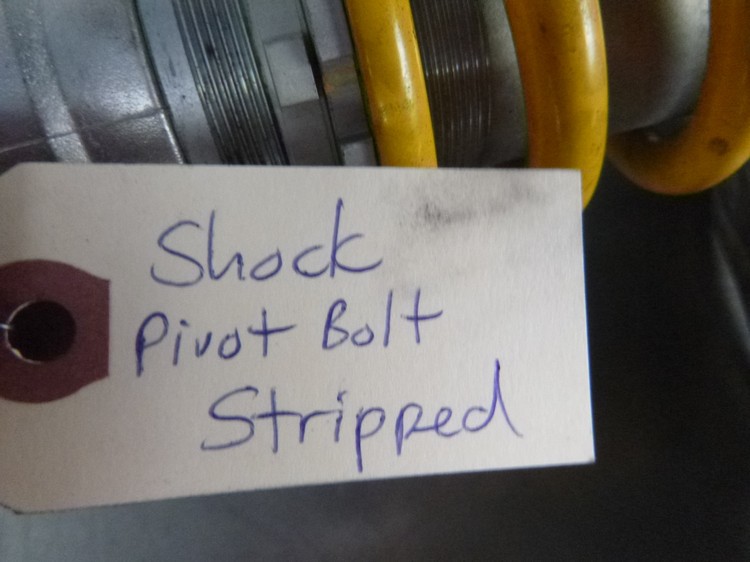 Shock
Pivot Bolt
Stripped